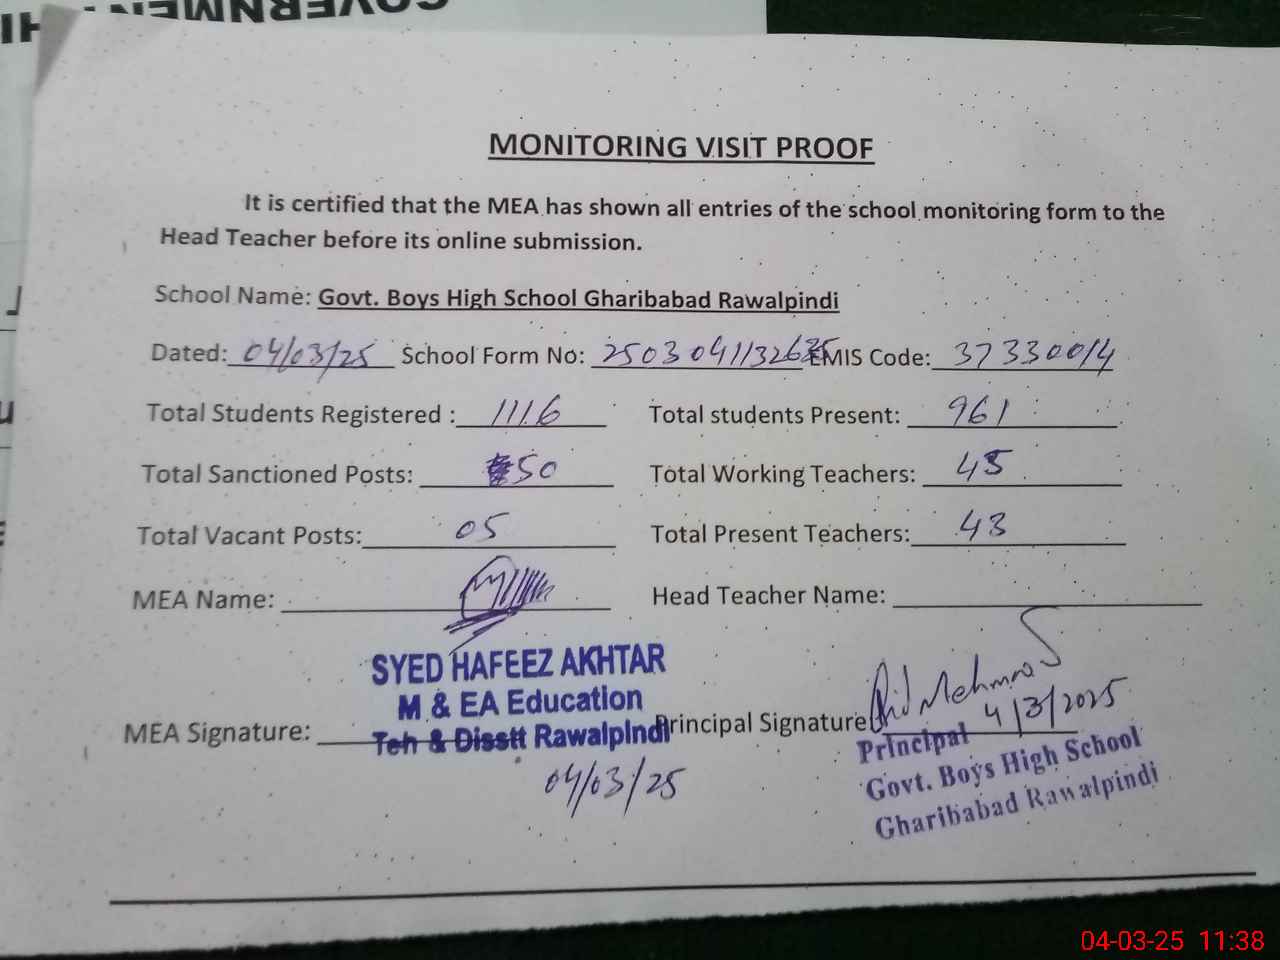 GOVERNMENT
HI
MONITORING VISIT PROOF
It is certified that the MEA has shown all entries of the school monitoring form to the
Head Teacher before its online submission.
School Name: Govt. Boys High School Gharibabad Rawalpindi
Dated: 04/03/25 School Form No: EMIS Code: 37330014
Total Students Registered : 1116 Total students Present: 961
Total Sanctioned Posts: 50 Total Working Teachers: 45
Total Vacant Posts: 05 Total Present Teachers: 43
MEA Name: Head Teacher Name:
SYED HAFEEZ AKHTAR
M & EA Education
MEA Signature: Teh & Disstt Rawalpindi Principal Signature Mehmood 4/3/2025
04/03/25
Principal
Govt. Boys High School
Gharibabad Rawalpindi
04-03-25 11:38